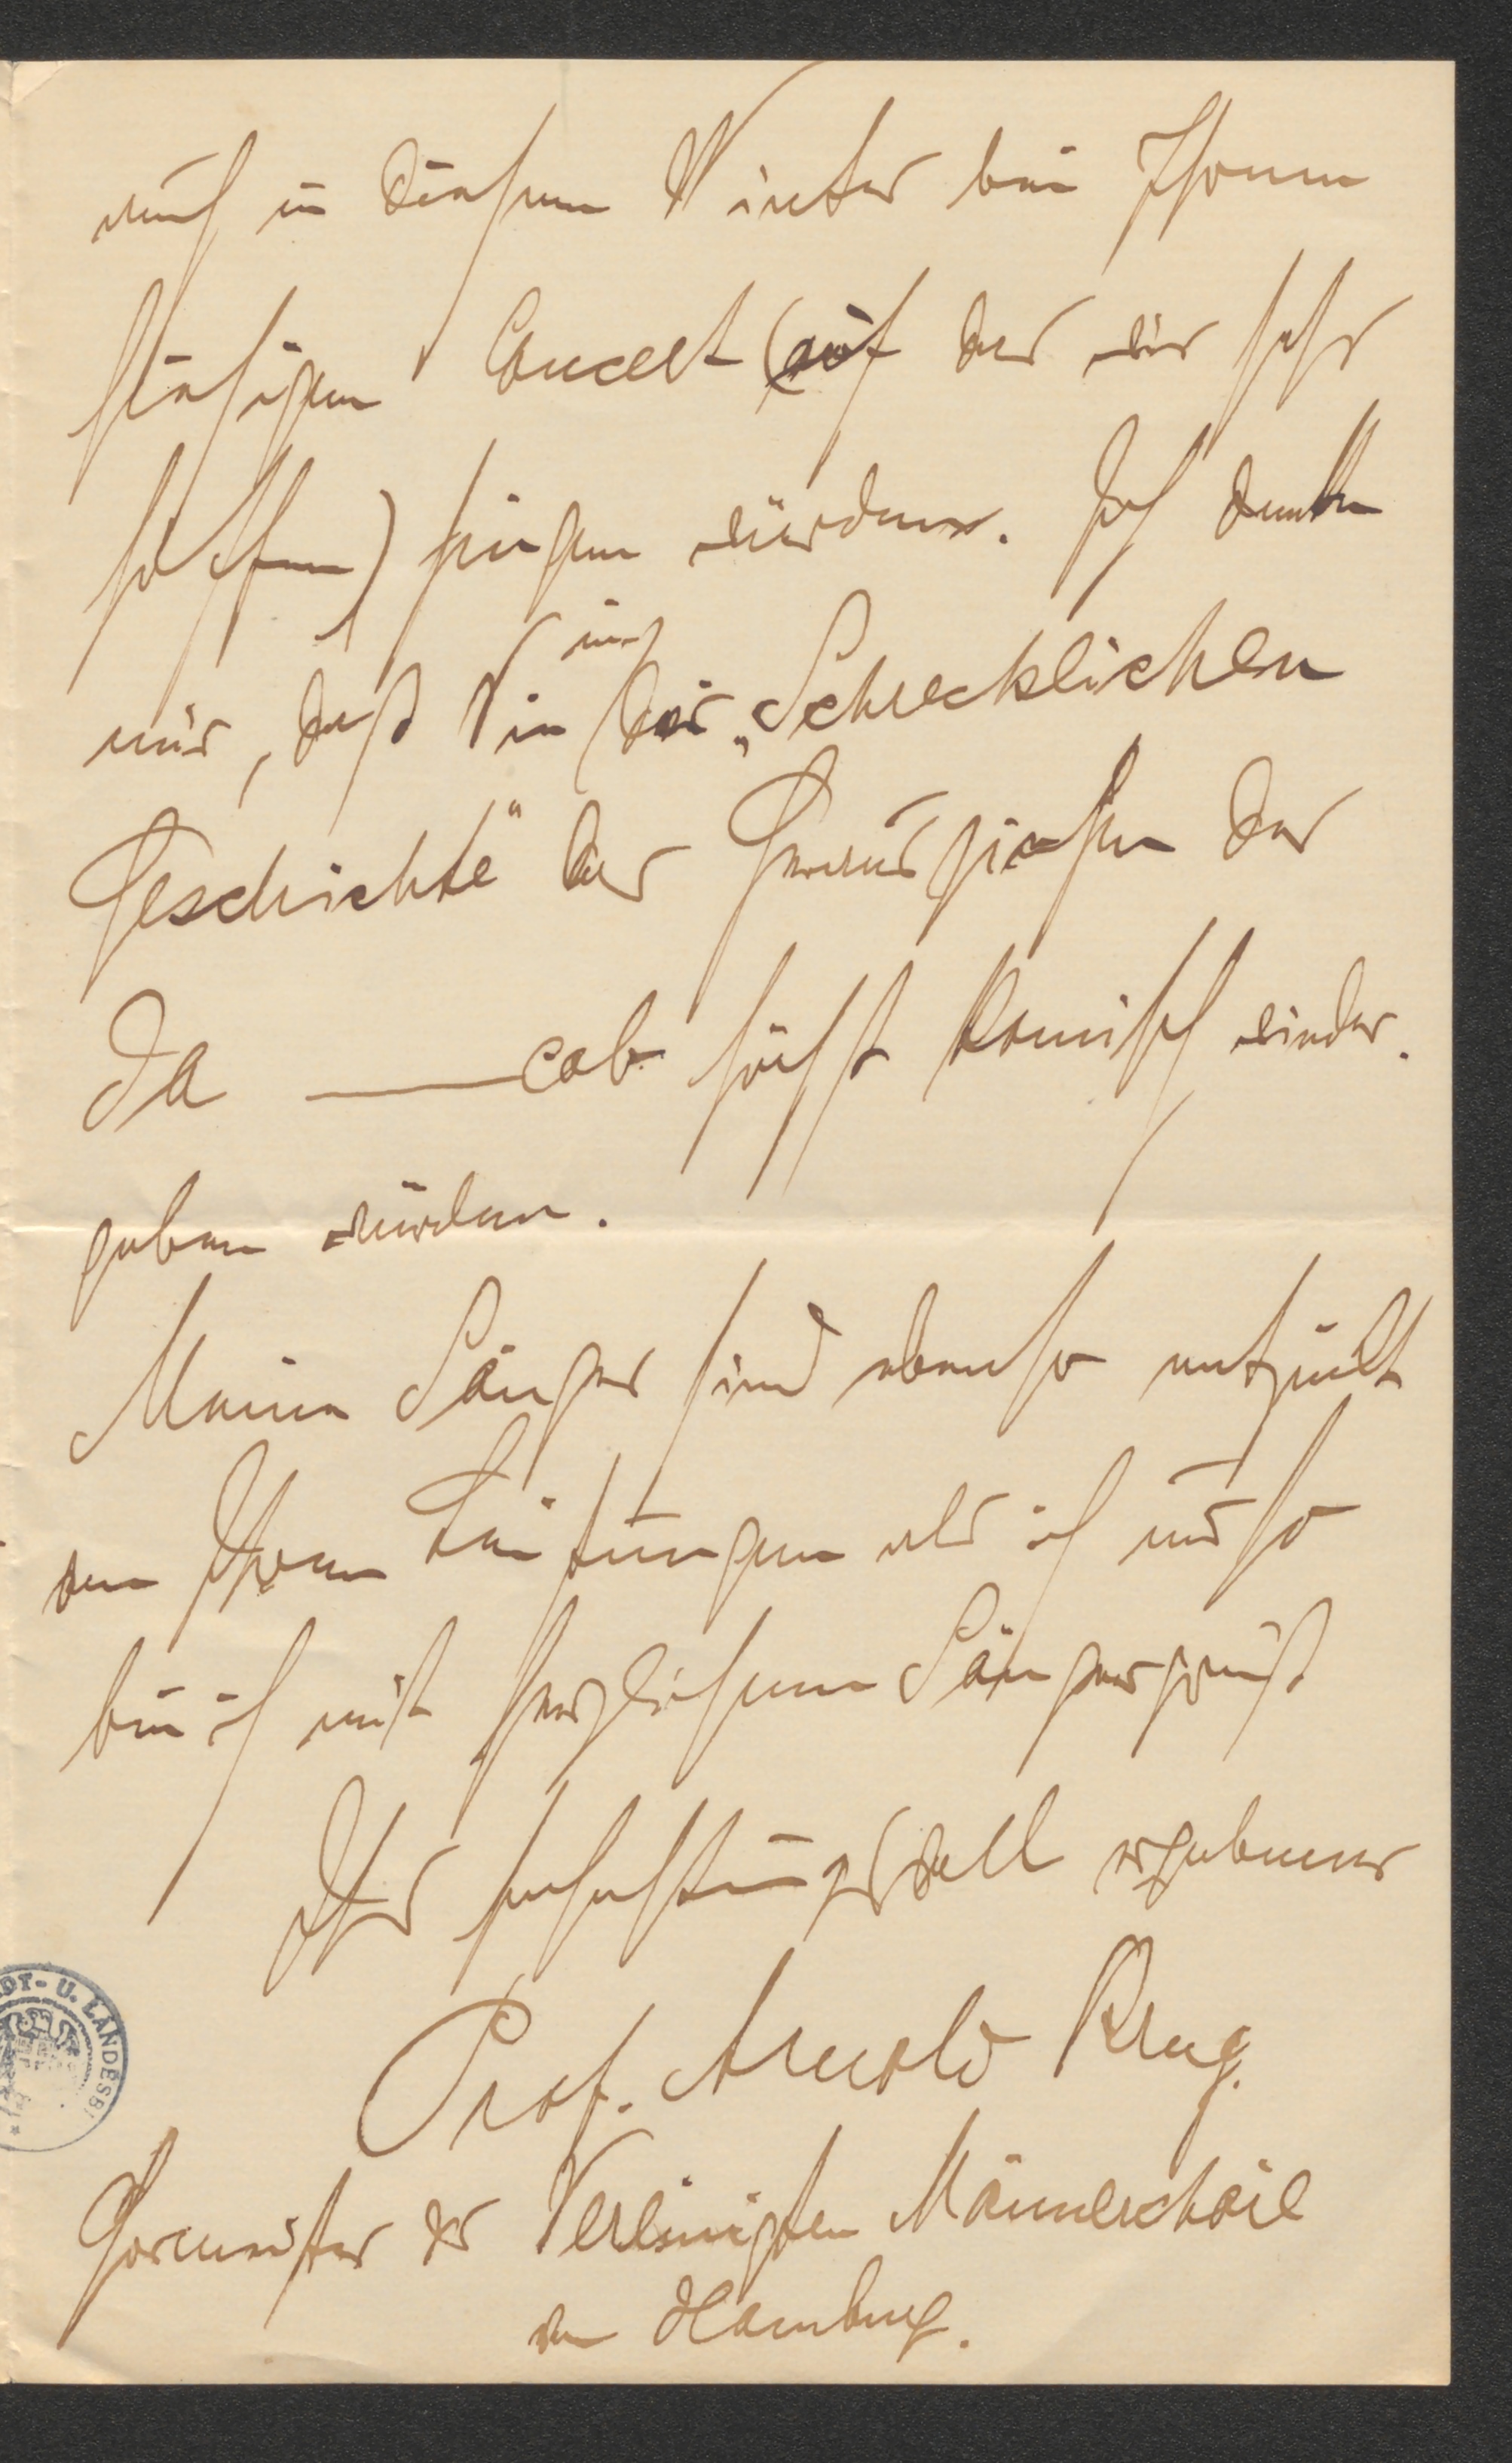 auch in diesem Winter bei Ihrem
hiesigen Concert (auf das wir sehr
hoffen) singen würden. Ich denke
mir, daß Sie in der „Schrecklichen
Geschichte" das Herausziehen des
Ja — cob höchst komisch wieder-
geben würden.
Meine Sänger sind ebenso entzückt
von Ihren Leistungen als ich und so
bin ich mit herzlichem Sängergruß
Ihr hochachtungsvoll ergebener
Prof. Arnold Krug.
Chormeister der Vereinigten Männerchöre
von Hamburg.
DT- U. LANDESBI